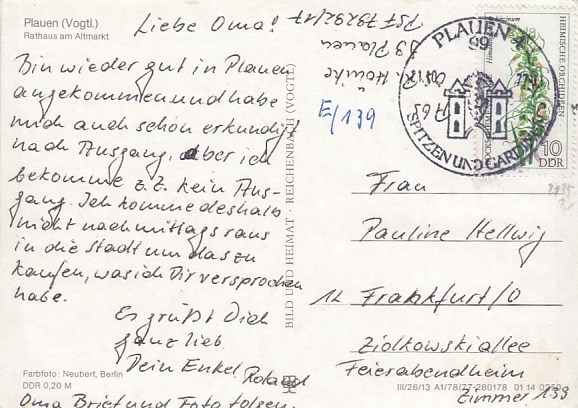 Plauen (Vogtl.)
Rathaus am Altmarkt
Liebe Oma!
Bin wieder gut in Plauen
angekommen und habe
mich auch schon erkundigt
nach Ausgang, aber ich
bekomme z.Z. kein Aus-
gang. Ich komme deshalb
nicht nachmittags raus
in die Stadt um das zu
kaufen, was ich Dir versprochen
habe.
Es grüßt Dich
ganz lieb
Dein Enkel Roland
Oma Brief und Foto folgen.
Farbfoto: Neubert, Berlin
DDR 0,20 M
BILD UND HEIMAT · REICHENBACH (VOGTL)
PSF 79292/
99 Plauen
E/139
PLAUEN 4
99
SPITZEN UND GARDINEN
HEIMISCHE ORCHIDEEN
10
DDR
Frau
Pauline Hellwig
12 Frankfurt/O
Ziolkowskiallee
Feierabendheim
Zimmer 139
III/26/13 A1/78/77 280178 01 14 0250